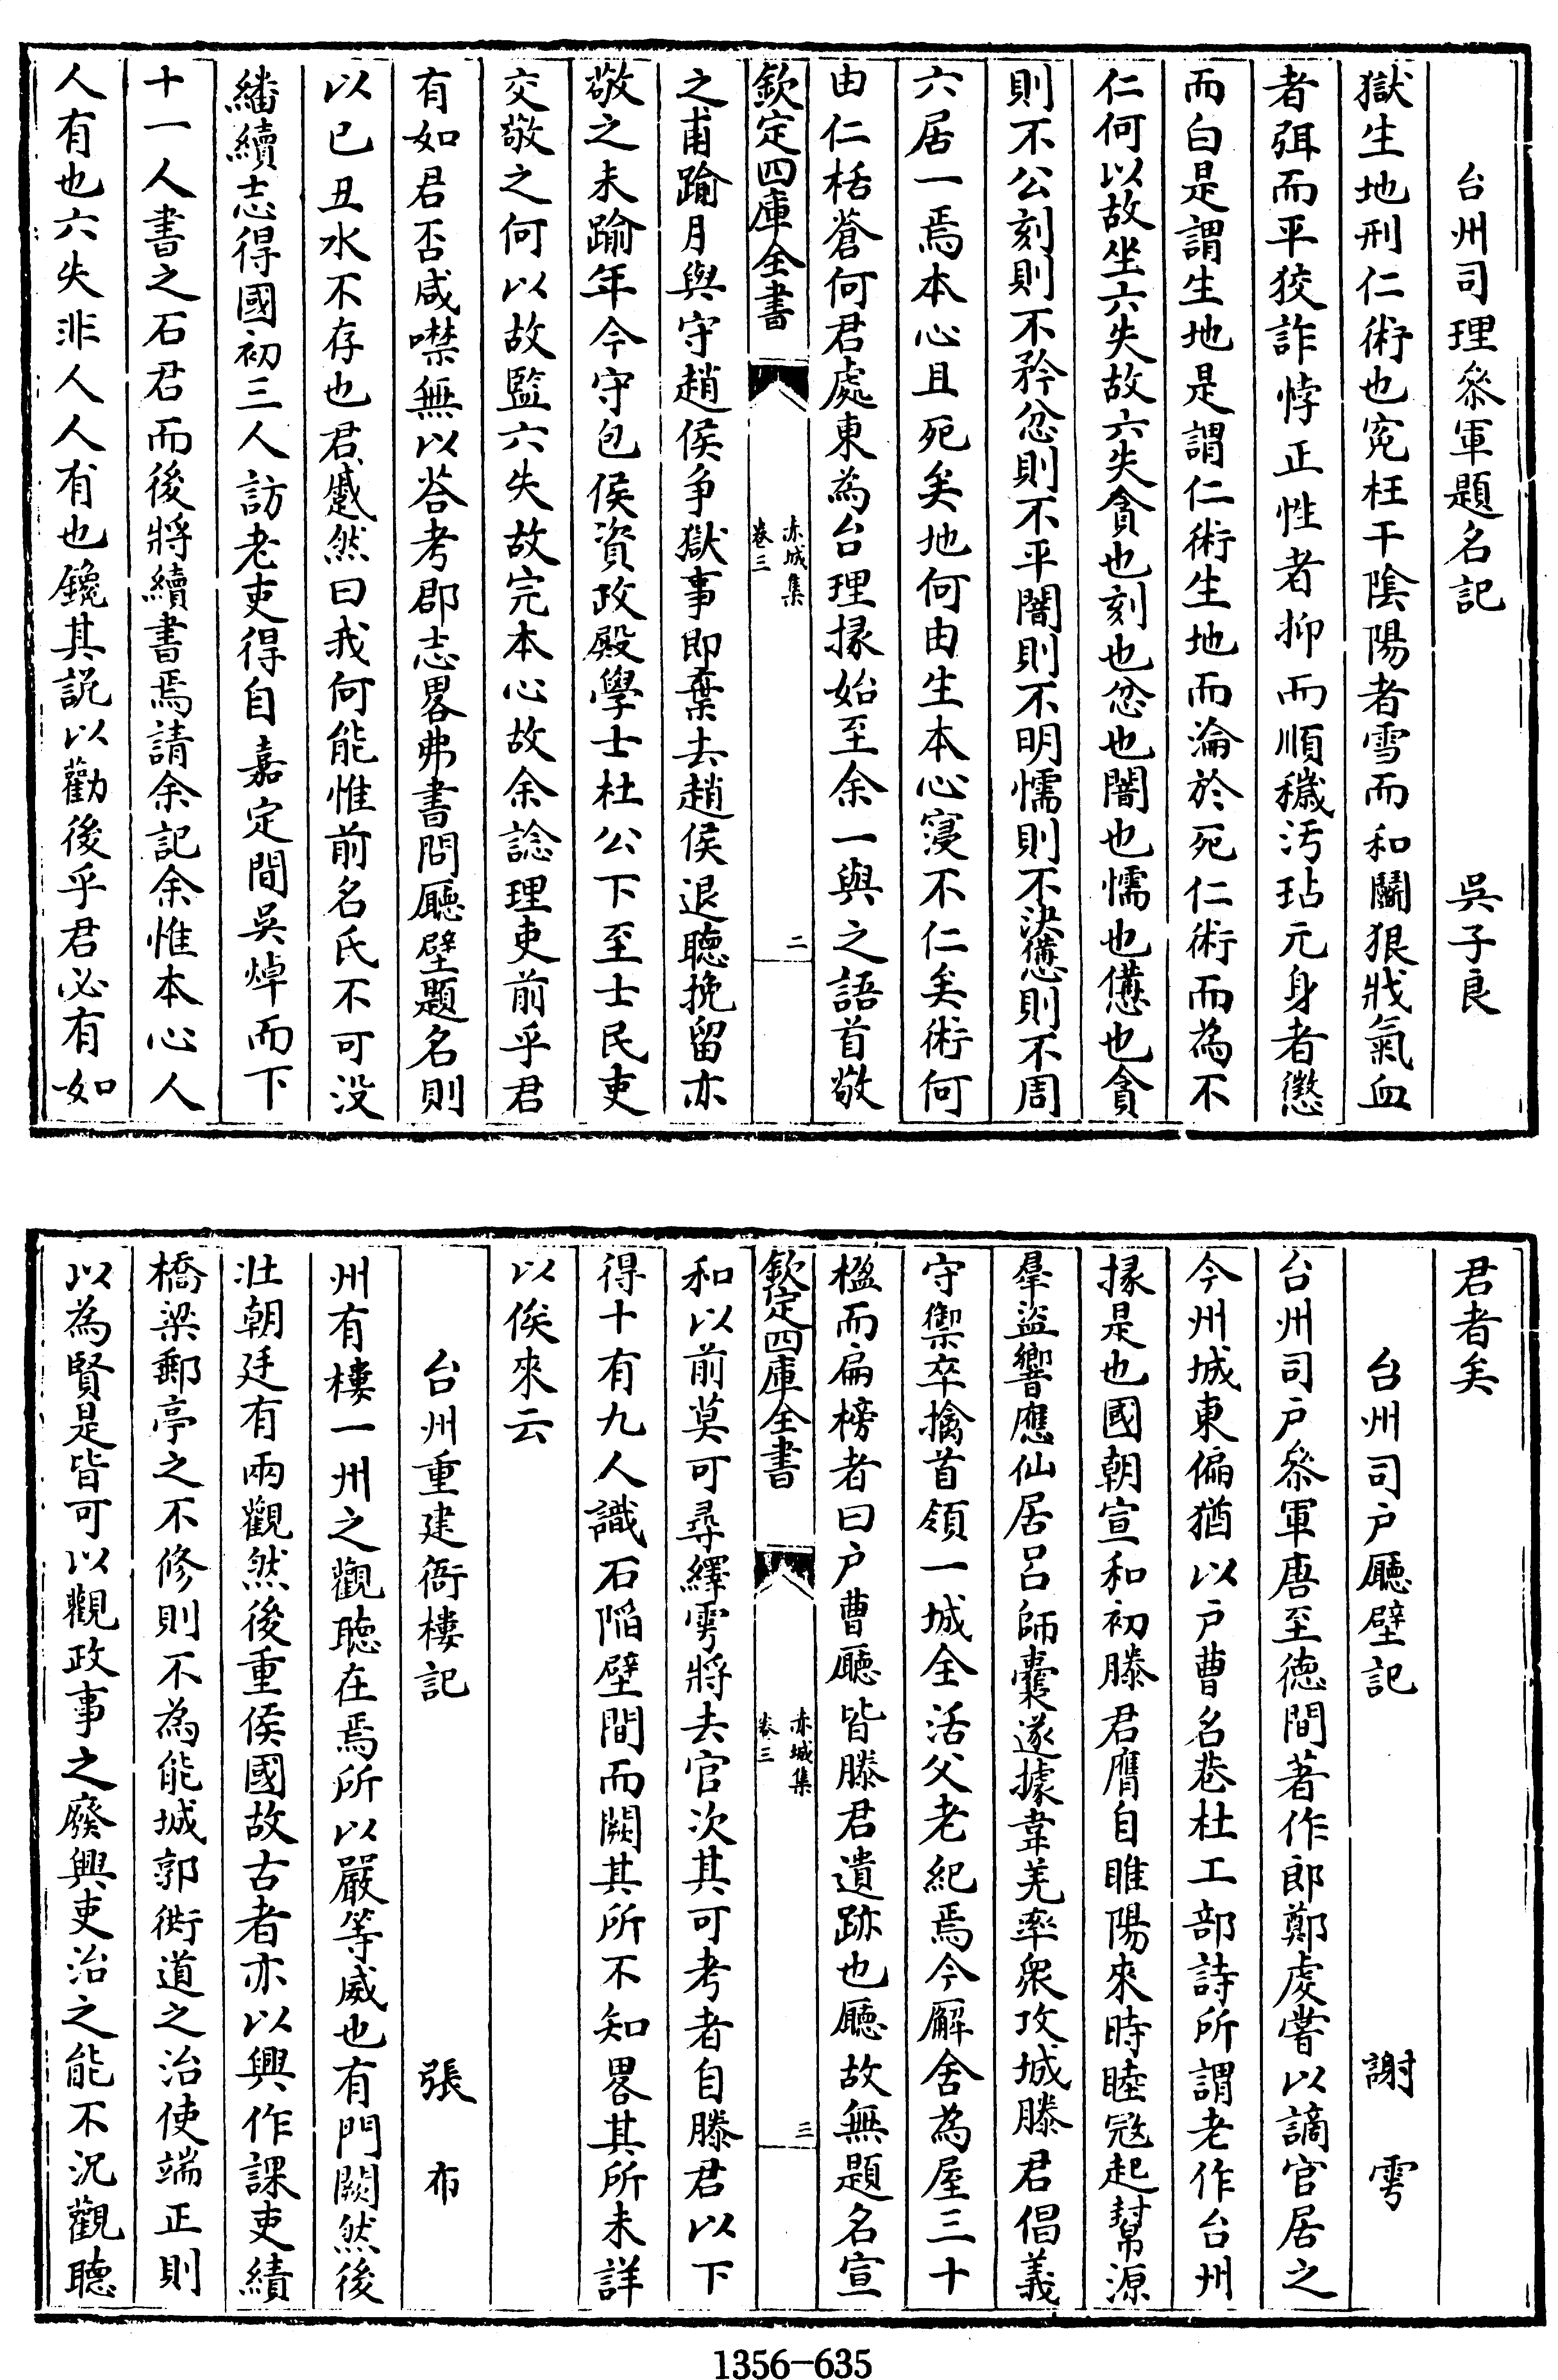 台州司理叅軍題名記　吳子良
獄生地刑仁術也寃枉干陰陽者雪而和鬬狠戕氣血
者弭而平狡詐悖正性者抑而順穢汚玷元身者懲
而白是謂生地是謂仁術生地而淪於死仁術而為不
仁何以故坐六失故六失貪也刻也忿也闇也懦也僣也貪
則不公刻則不矜忿則不平闇則不明懦則不決僣則不周
六居一焉本心且死矣地何由生本心寖不仁矣術何
由仁栝蒼何君處東為台理掾始至余一與之語首敬
欽定四庫全書
赤城集
卷三
二
之甫踰月與守趙侯争獄事即棄去趙侯退聽挽留亦
敬之未踰年今守包侯資政殿學士杜公下至士民吏
交敬之何以故監六失故完本心故余諗理吏前乎君
有如君否咸噤無以荅考郡志畧弗書問廳壁題名則
以巳丑水不存也君蹙然曰我何能惟前名氏不可沒
繙續志得國初三人訪老吏得自嘉定間吳焯而下
十一人書之石君而後將續書焉請余記余惟本心人
人有也六失非人人有也鑱其説以勸後乎君必有如
君者矣
台州司戶廳壁記　謝雩
台州司戶叅軍唐至德間著作郎鄭虔嘗以謫官居之
今州城東偏猶以戶曹名巷杜工部詩所謂老作台州
掾是也國朝宣和初滕君膺自睢陽來時睦冦起幫源
羣盜響應仙居呂師囊遂據韋羌率衆攻城滕君倡義
守禦卒擒首領一城全活父老紀焉今廨舍為屋三十
楹而扁榜者曰戶曹廳皆滕君遺跡也廳故無題名宣
欽定四庫全書
赤城集
卷三
三
和以前莫可尋繹雩將去官次其可考者自滕君以下
得十有九人識石陷壁間而闕其所不知畧其所未詳
以俟來云
台州重建衙樓記　張布
州有樓一州之觀聽在焉所以嚴等威也有門闕然後
壯朝廷有兩觀然後重侯國故古者亦以興作課吏績
橋梁郵亭之不修則不為能城郭街道之治使端正則
以為賢是皆可以觀政事之廢興吏治之能不況觀聽
1356—635